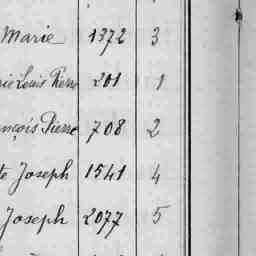 Marie 1372 3
rie Louis Pierre 201 1
nçois Pierre 708 2
te Joseph 1541 4
Joseph 2077 5